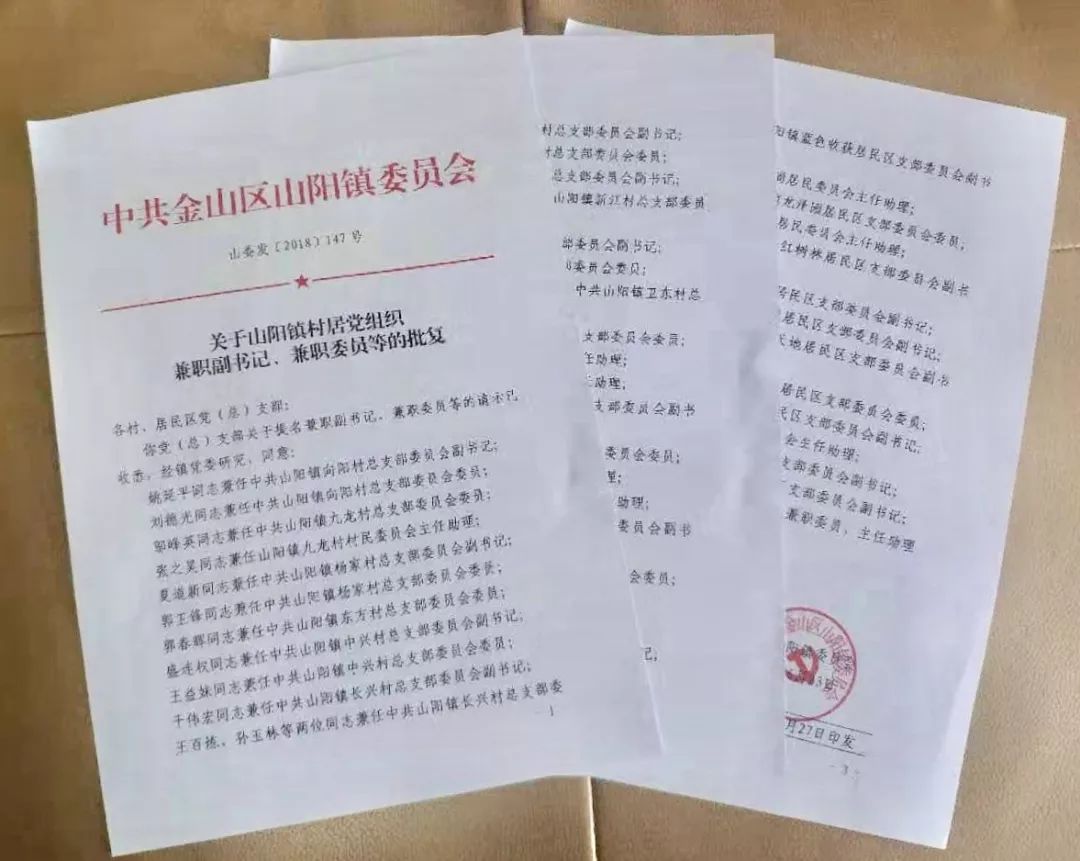 中共金山区山阳镇委员会
山委发〔2018〕147号
关于山阳镇村居党组织
兼职副书记、兼职委员等的批复
各村、居民区党（总）支部：
你党（总）支部关于提名兼职副书记、兼职委员等的请示已
收悉。经镇党委研究，同意：
姚延平同志兼任中共山阳镇向阳村总支部委员会副书记；
刘德光同志兼任中共山阳镇向阳村总支部委员会委员；
邬峰英同志兼任中共山阳镇九龙村总支部委员会委员；
张之昊同志兼任山阳镇九龙村村民委员会主任助理；
夏道新同志兼任中共山阳镇杨家村总支部委员会副书记；
郭王锋同志兼任中共山阳镇杨家村总支部委员会委员；
郭春晖同志兼任中共山阳镇东方村总支部委员会委员；
盛连权同志兼任中共山阳镇中兴村总支部委员会副书记；
王益妹同志兼任中共山阳镇中兴村总支部委员会委员；
干伟宏同志兼任中共山阳镇长兴村总支部委员会副书记；
王百拣、孙玉林等两位同志兼任中共山阳镇长兴村总支部委
- 1
村总支部委员会副书记；
村总支部委员会委员；
总支部委员会副书记；
山阳镇新江村总支部委员
部委员会副书记；
委员会委员；
中共山阳镇卫东村总
支部委员会委员；
任助理；
主助理；
支部委员会副书
委员会委员；
助理；
委员会副书
会委员；
记；
阳镇蓝色收获居民区支部委员会副书
居民委员会主任助理；
龙泽园居民区支部委员会委员；
居民委员会主任助理；
红树林居民区支部委员会副书
居民区支部委员会副书记；
居民区支部委员会副书记；
天地居民区支部委员会副书
居民区支部委员会委员；
民区支部委员会副书记；
会主任助理；
支部委员会副书记；
支部委员会副书记；
兼职委员，主任助理
金山区山阳镇委员会
阳镇委员
3日
月27日印发
- 3